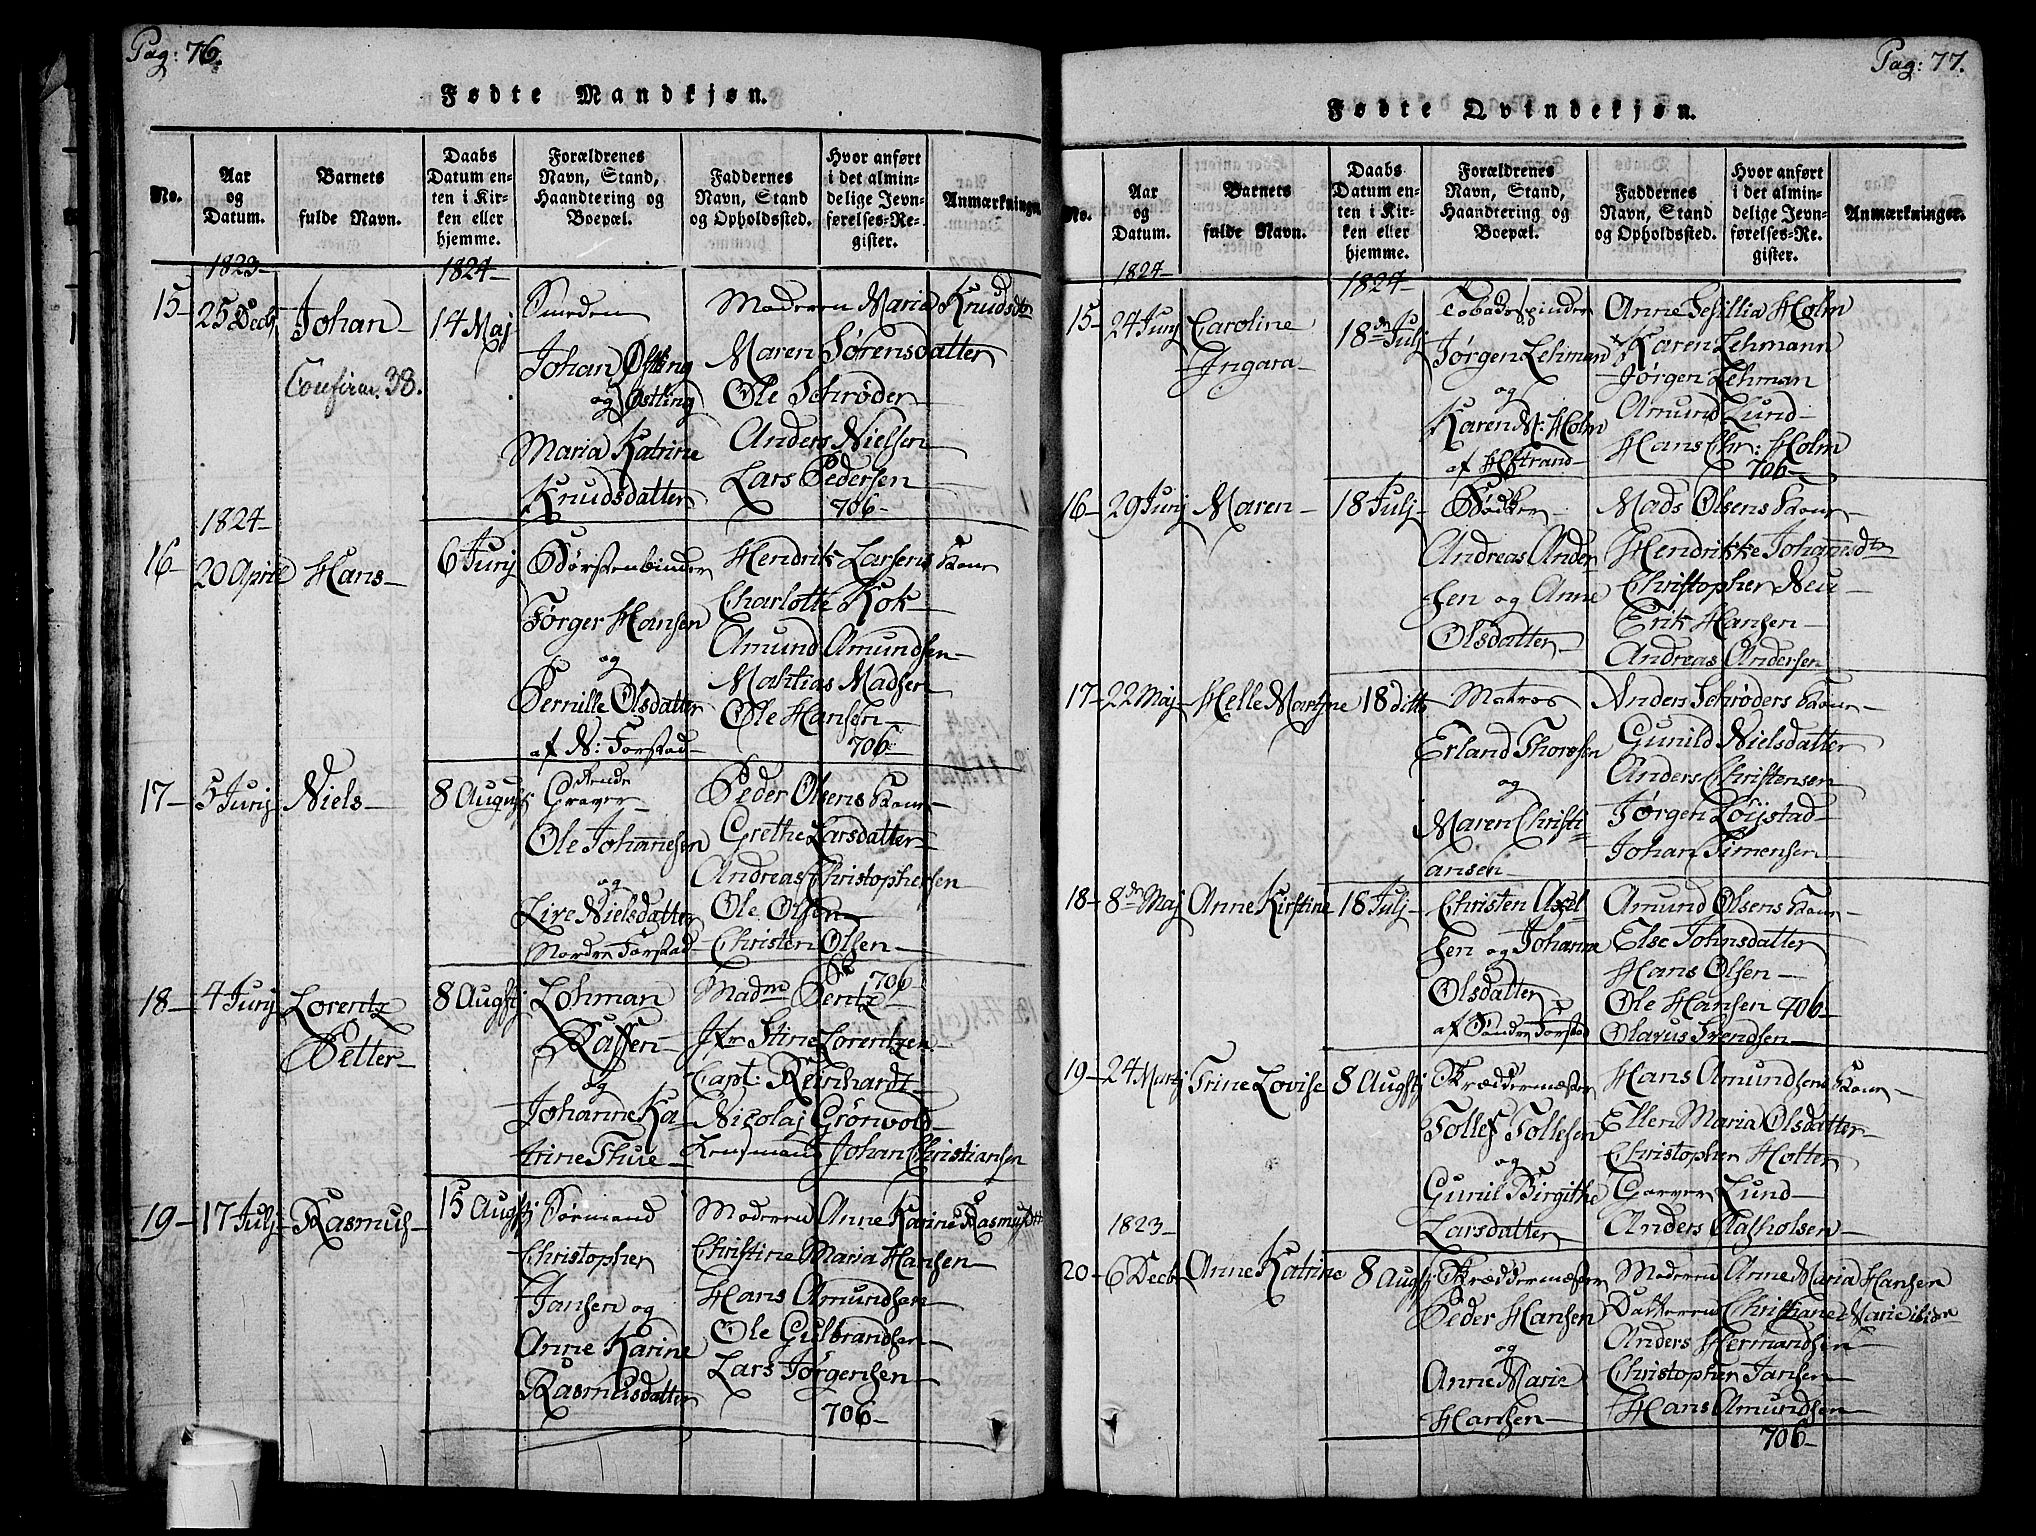 Pag: 76.
Fødte Mandkjøn.
No.
Aar
og
Datum.
Barnets
fulde Navn.
Daabs
Datum en-
ten i Kir-
ken eller
hjemme.
Forældrenes
Navn, Stand,
Haandtering og
Boepæl.
Faddernes
Navn, Stand
og Opholdssted.
Hvor anført
i det almin-
delige Jevn-
førelses-Re-
gister.
Anmærkninger.
1823-
1824-
15- 25 Decb Johan 14 Maj
Confirm. 38.
Smeden
Johan
og Østling
Maria Katrine
Knudsdatter
Moderen Maria Knudsdtr
Maren Sørensdatter
Ole Schrøder
Anders Nielsen
Lars Pedersen
706-
1824-
16- 20 April Hans- 6 Junj
Børstenbinder
Jørger Hansen
og
Pernille Olsdatter
af N: Forstad-
Hendrik Larsens Kone
Charlotte Kok-
Amund Amundsen-
Mathias Madsen-
Ole Hansen-
706-
17- 5 Junj Niels- 8 August
Graver
Ole Johannesen
og
Live Nielsdatter
Nordre Forstad-
Peder Olsens Kone-
Grethe Larsdatter-
Andreas Christophersen-
Ole Olsen
Christen Olsen-
706
18- 4 Junj Lorentz 8 Augstj
Petter-
Lohman
og
Johanne Ka-
trine Thue-
Madm Bentz
Jfr Stine Lorentzen
Capt: Reinhardt-
Nicolaj Grönvold-
Johan Christiansen
19- 17 Julj- Rasmus- 15 Augstj
Formand
Christopher
Jansen og
Anne Karine
Rasmusdatter
Moderen Anne Karine Rasmusdtr
Christine Maria Hansen-
Hans Amundsen-
Ole Gulbrandsen-
Lars Jørgensen-
706-
Pag: 77.
Fødte Qvindekjøn.
No.
Aar
og
Datum.
Barnets
fulde Navn.
Daabs
Datum en-
ten i Kir-
ken eller
hjemme.
Forældrenes
Navn, Stand,
Haandtering og
Boepæl.
Faddernes
Navn, Stand
og Opholdssted.
Hvor anført
i det almin-
delige Jevn-
førelses-Re-
gister.
Anmærkninger.
1824-
1824-
15- 24 Junj Caroline 18de Julj
Ingara-
Tobaksspinder
Jørgen Lehman
og
Karen N: Holm
af HStrand-
Anne Holm
Karen Lehmann
Jørgen Lehman
Amund Lund-
Hans Chr: Holm
706-
16- 29 Junj Maren- 18 Julj-
Bødker-
Andreas Ander-
sen og Anne
Olsdatter-
Mads Olsens Kone-
Hendrikke Johansdtr
Christopher Neu-
Erik Hansen-
Andreas Andersen
17- 22 Maj- Helle Martine 18 ditto
Matros
Erland Thorssen
og
Maren Christi-
ansen-
Anders Schrøders Kone-
Gunild Nielsdatter
Anders Christensen
Jørgen Löijstad-
Johan Simensen-
18- 8de Maj Anne Kirstine 18 Julj-
Christen Axel-
sen og Johanne
Olsdatter
af Søndre Forstad
Amund Olsens Kone-
Else Johnsdatter
Hans Olsen-
Ole Hansen 706-
Olavus Svendsen-
19- 24 Martj Trine Lovise 8 Augstj
Skræddermester
Tollef Tollefsen
og
Gunil Birgithe
Larsdatter-
Hans Amundsens Kone-
Ellen Maria Olsdatter-
Christopher Holter
Garver Lund-
Anders Aasholsen-
1823-
20- 6 Decb Anne Katrine 8 Augstj
Skræddermester
Peder Hansen
og
Anne Marie
Hansen-
Moderen Anne Maria Hansen
Datteren Christiane Marie
Anders Hermandsen-
Christopher Jansen
Hans Amundsen-
706-